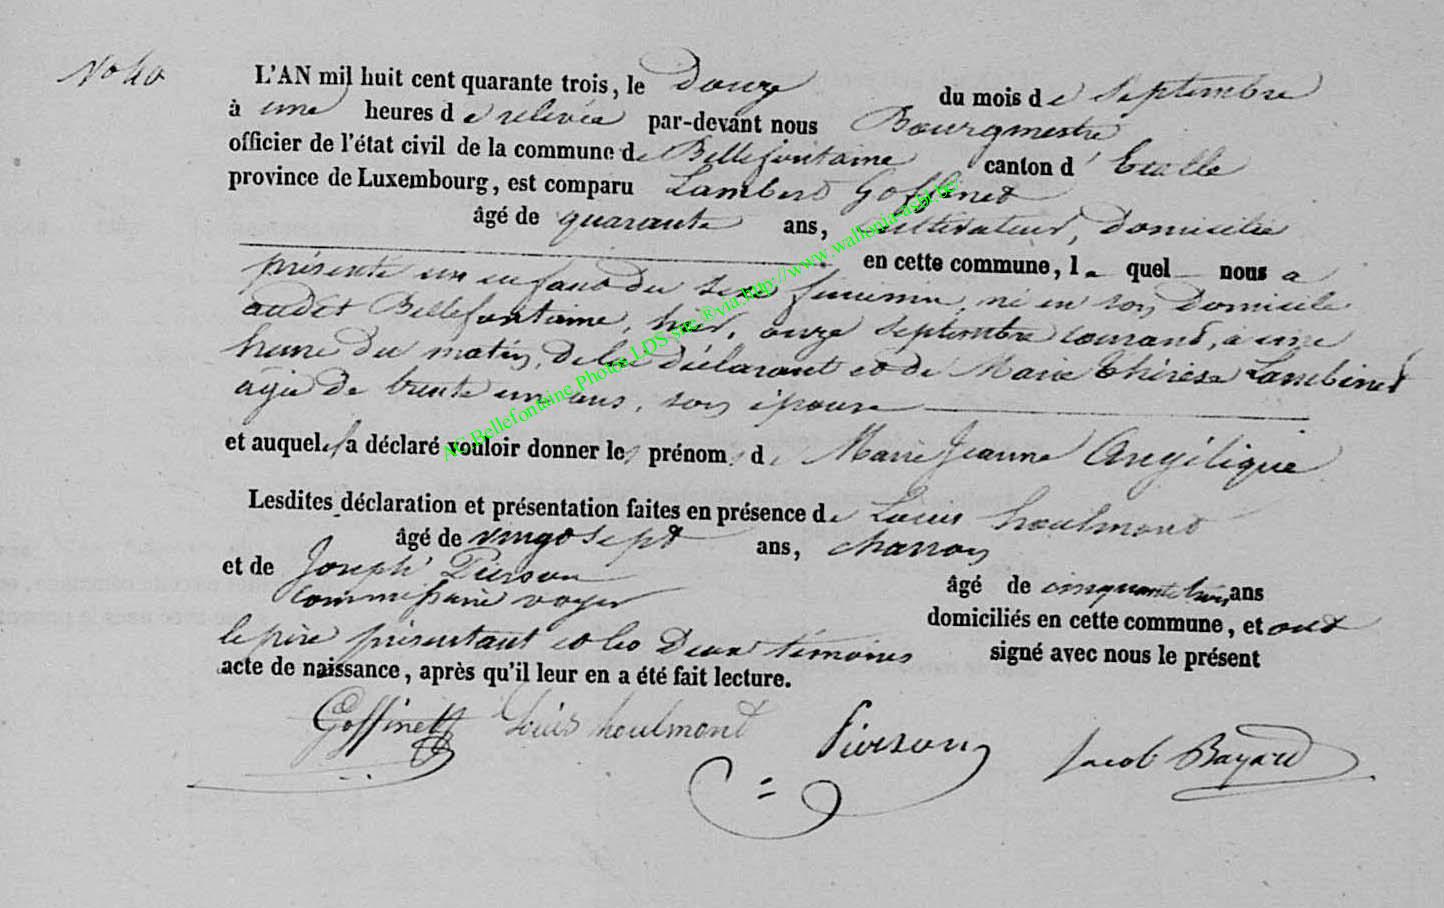 No 40
L'AN mil huit cent quarante trois, le Douze du mois de Septembre
à une heures de relevée par-devant nous Bourgmestre
officier de l'état civil de la commune de Bellefontaine canton d' Etalle
province de Luxembourg, est comparu Lambert Goffinet
âgé de quarante ans, cultivateur, domicilié
en cette commune, lequel nous a
présenté un enfant du sexe féminin, né en son domicile
audit Bellefontaine, hier, onze septembre courant, à une
heure du matin, de lui déclarant et de Marie Thérèse Lambinet
âgée de trente un ans, son épouse
et auquel il a déclaré vouloir donner les prénoms de Marie Jeanne Angélique
Lesdites déclaration et présentation faites en présence de Louis houlmont
âgé de vingt sept ans, charron
et de Joseph Pierson âgé de cinquante trois ans
Commissaire voyer domiciliés en cette commune, et ont
le père présentant et les Deux témoins signé avec nous le présent
acte de naissance, après qu'il leur en a été fait lecture.
Goffinet Louis houlmont Pierson Jacob Bayard
AC Bellefontaine Photos LDS site ®via http://www.wallonia-asbl.be/